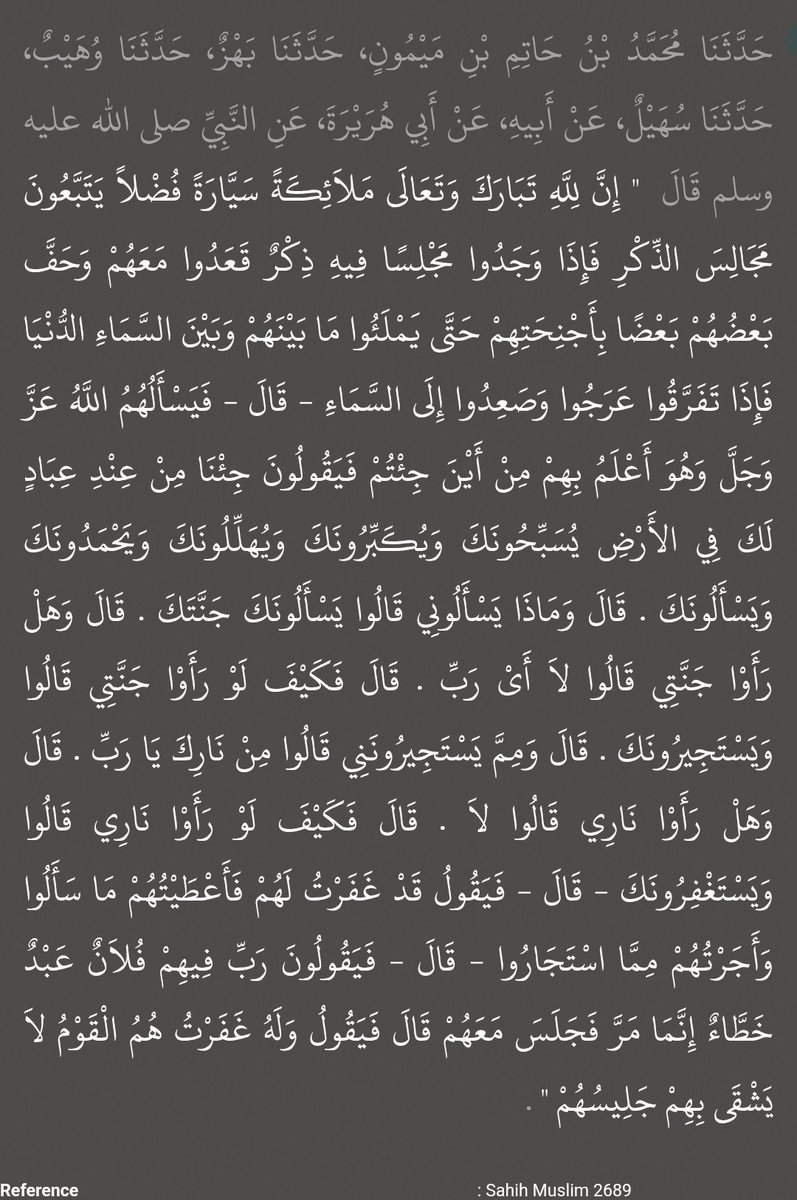 حَدَّثَنَا مُحَمَّدُ بْنُ حَاتِمِ بْنِ مَيْمُونٍ، حَدَّثَنَا بَهْزٌ، حَدَّثَنَا وُهَيْبٌ،
حَدَّثَنَا سُهَيْلٌ، عَنْ أَبِيهِ، عَنْ أَبِي هُرَيْرَةَ، عَنِ النَّبِيِّ صلى الله عليه
وسلم قَالَ ‏ "‏ إِنَّ لِلَّهِ تَبَارَكَ وَتَعَالَى مَلاَئِكَةً سَيَّارَةً فُضْلاً يَتَبَّعُونَ
مَجَالِسَ الذِّكْرِ فَإِذَا وَجَدُوا مَجْلِسًا فِيهِ ذِكْرٌ قَعَدُوا مَعَهُمْ وَحَفَّ
بَعْضُهُمْ بَعْضًا بِأَجْنِحَتِهِمْ حَتَّى يَمْلَئُوا مَا بَيْنَهُمْ وَبَيْنَ السَّمَاءِ الدُّنْيَا
فَإِذَا تَفَرَّقُوا عَرَجُوا وَصَعِدُوا إِلَى السَّمَاءِ - قَالَ - فَيَسْأَلُهُمُ اللَّهُ عَزَّ
وَجَلَّ وَهُوَ أَعْلَمُ بِهِمْ مِنْ أَيْنَ جِئْتُمْ فَيَقُولُونَ جِئْنَا مِنْ عِنْدِ عِبَادٍ
لَكَ فِي الأَرْضِ يُسَبِّحُونَكَ وَيُكَبِّرُونَكَ وَيُهَلِّلُونَكَ وَيَحْمَدُونَكَ
وَيَسْأَلُونَكَ . قَالَ وَمَاذَا يَسْأَلُونِي قَالُوا يَسْأَلُونَكَ جَنَّتَكَ . قَالَ وَهَلْ
رَأَوْا جَنَّتِي قَالُوا لاَ أَىْ رَبِّ . قَالَ فَكَيْفَ لَوْ رَأَوْا جَنَّتِي قَالُوا
وَيَسْتَجِيرُونَكَ . قَالَ وَمِمَّ يَسْتَجِيرُونَنِي قَالُوا مِنْ نَارِكَ يَا رَبِّ . قَالَ
وَهَلْ رَأَوْا نَارِي قَالُوا لاَ . قَالَ فَكَيْفَ لَوْ رَأَوْا نَارِي قَالُوا
وَيَسْتَغْفِرُونَكَ - قَالَ - فَيَقُولُ قَدْ غَفَرْتُ لَهُمْ فَأَعْطَيْتُهُمْ مَا سَأَلُوا
وَأَجَرْتُهُمْ مِمَّا اسْتَجَارُوا - قَالَ - فَيَقُولُونَ رَبِّ فِيهِمْ فُلاَنٌ عَبْدٌ
خَطَّاءٌ إِنَّمَا مَرَّ فَجَلَسَ مَعَهُمْ قَالَ فَيَقُولُ وَلَهُ غَفَرْتُ هُمُ الْقَوْمُ لاَ
يَشْقَى بِهِمْ جَلِيسُهُمْ " .
Reference : Sahih Muslim 2689